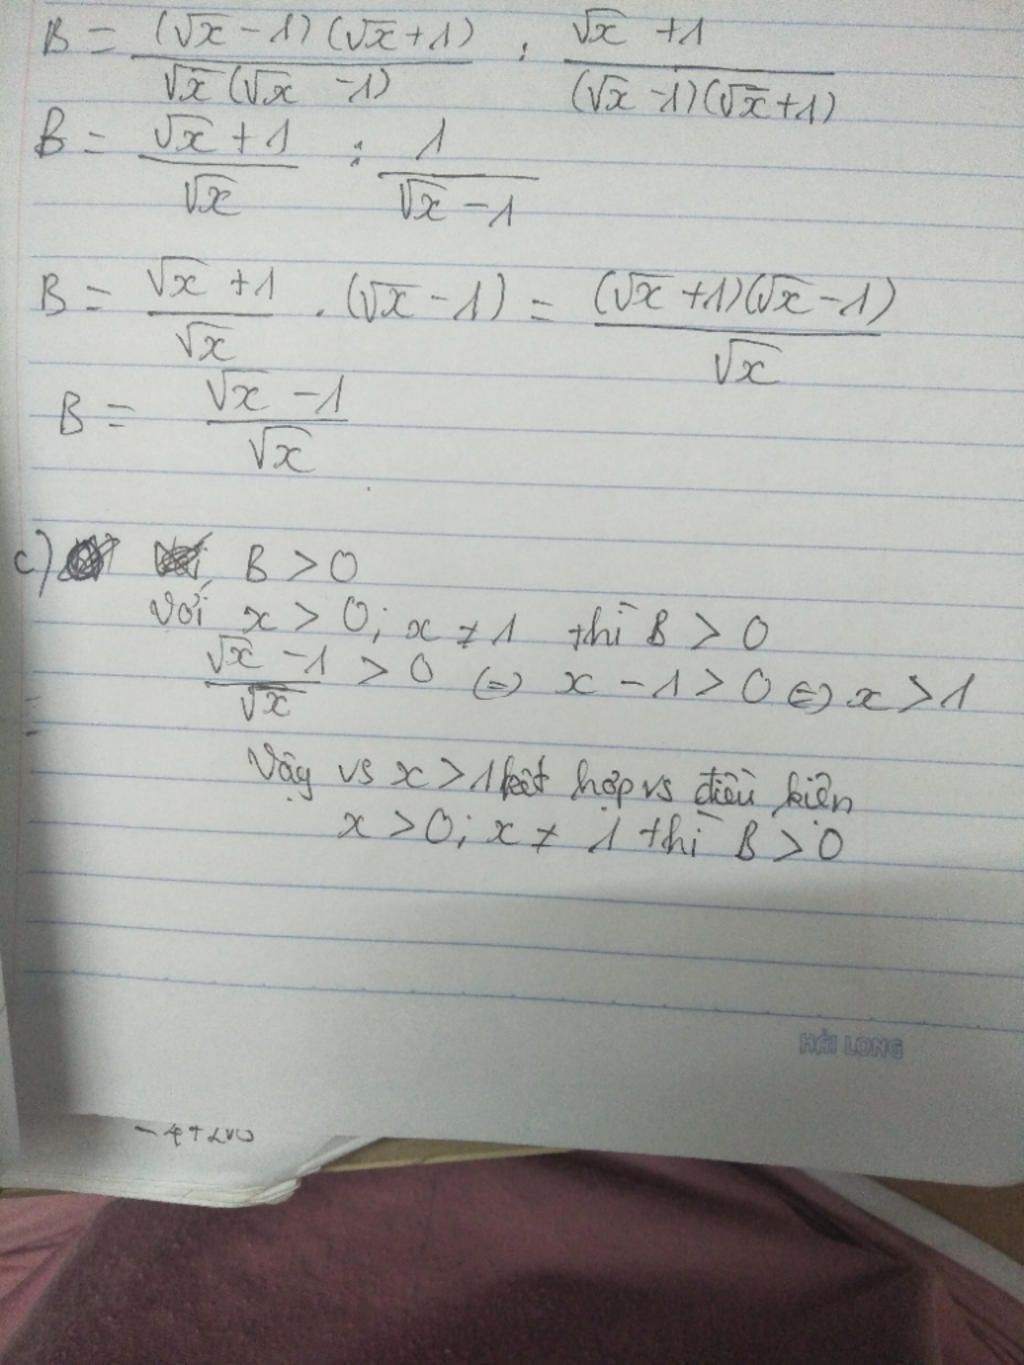 B = (√x − 1)(√x + 1) / √x(√x − 1) : √x + 1 / (√x − 1)(√x + 1)
B = √x + 1 / √x : 1 / √x − 1
B = √x + 1 / √x . (√x − 1) = (√x + 1)(√x − 1) / √x
B = √x − 1 / √x
c) B > 0
Với x > 0; x ≠ 1 thì B > 0
√x − 1 / √x > 0 ⇔ x − 1 > 0 ⇔ x > 1
Vậy vs x > 1 kết hợp vs điều kiện
x > 0; x ≠ 1 thì B > 0
HẢI LONG